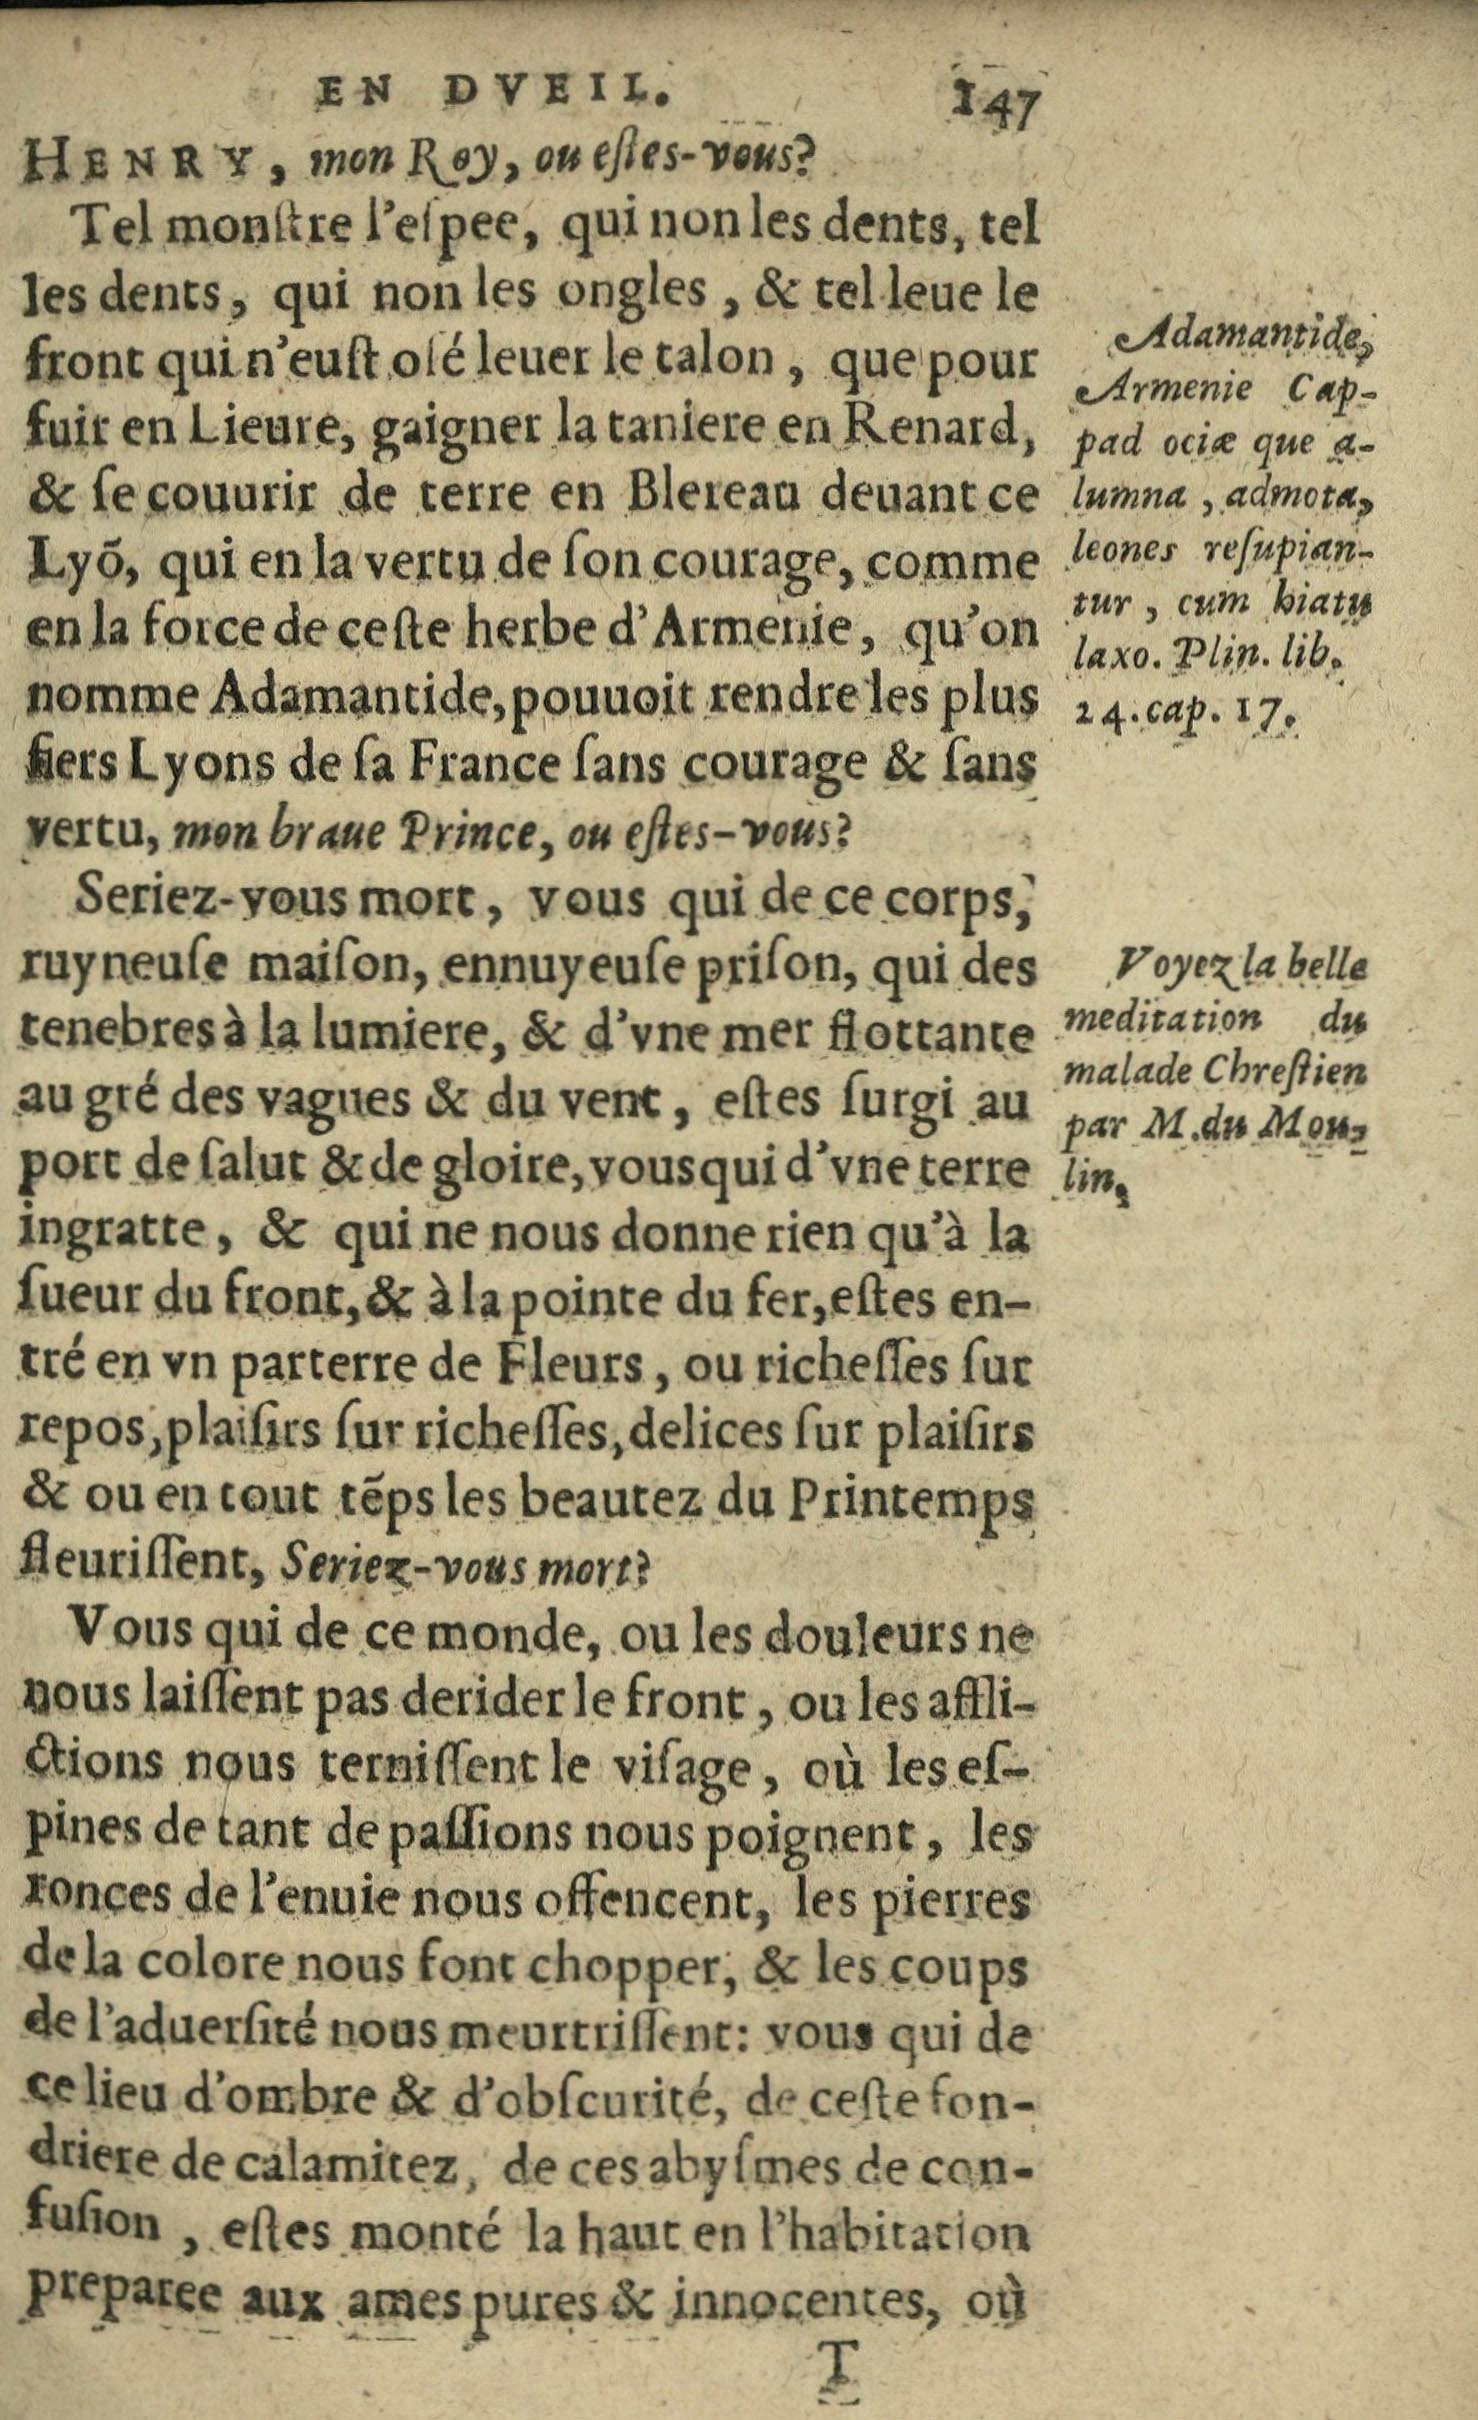 EN DVEIL. 147
HENRY, mon Roy, ou eſtes-vous?
Tel monſtre l'eſpee, qui non les dents, tel
les dents, qui non les ongles, & tel leue le
front qui n'euſt oſé leuer le talon, que pour
fuir en Lieure, gaigner la taniere en Renard,
& ſe couurir de terre en Blereau deuant ce
Lyõ, qui en la vertu de ſon courage, comme
en la force de ceſte herbe d'Armenie, qu'on
nomme Adamantide, pouuoit rendre les plus
fiers Lyons de ſa France ſans courage & ſans
vertu, mon braue Prince, ou eſtes-vous?
Seriez-vous mort, vous qui de ce corps,
ruyneuſe maiſon, ennuyeuſe priſon, qui des
tenebres à la lumiere, & d'vne mer flottante
au gré des vagues & du vent, eſtes ſurgi au
port de ſalut & de gloire, vous qui d'vne terre
ingratte, & qui ne nous donne rien qu'à la
ſueur du front, & à la pointe du fer, eſtes en-
tré en vn parterre de Fleurs, ou richeſſes ſur
repos, plaiſirs ſur richeſſes, delices ſur plaiſirs
& ou en tout tẽps les beautez du Printemps
fleuriſſent, Seriez-vous mort?
Vous qui de ce monde, ou les douleurs ne
nous laiſſent pas derider le front, ou les affli-
ctions nous terniſſent le viſage, où les eſ-
pines de tant de paſſions nous poignent, les
ronces de l'enuie nous offencent, les pierres
de la colore nous font chopper, & les coups
de l'aduerſité nous meurtriſſent: vous qui de
ce lieu d'ombre & d'obſcurité, de ceſte fon-
driere de calamitez, de ces abyſmes de con-
fuſion, eſtes monté la haut en l'habitation
preparee aux ames pures & innocentes, où
T
Adamantide,
Armenie Cap-
pad ociæ que a-
lumna, admota,
leones reſupian-
tur, cum hiatu
laxo. Plin. lib.
24. cap. 17.
Voyez la belle
meditation du
malade Chreſtien
par M. du Mou-
lin.